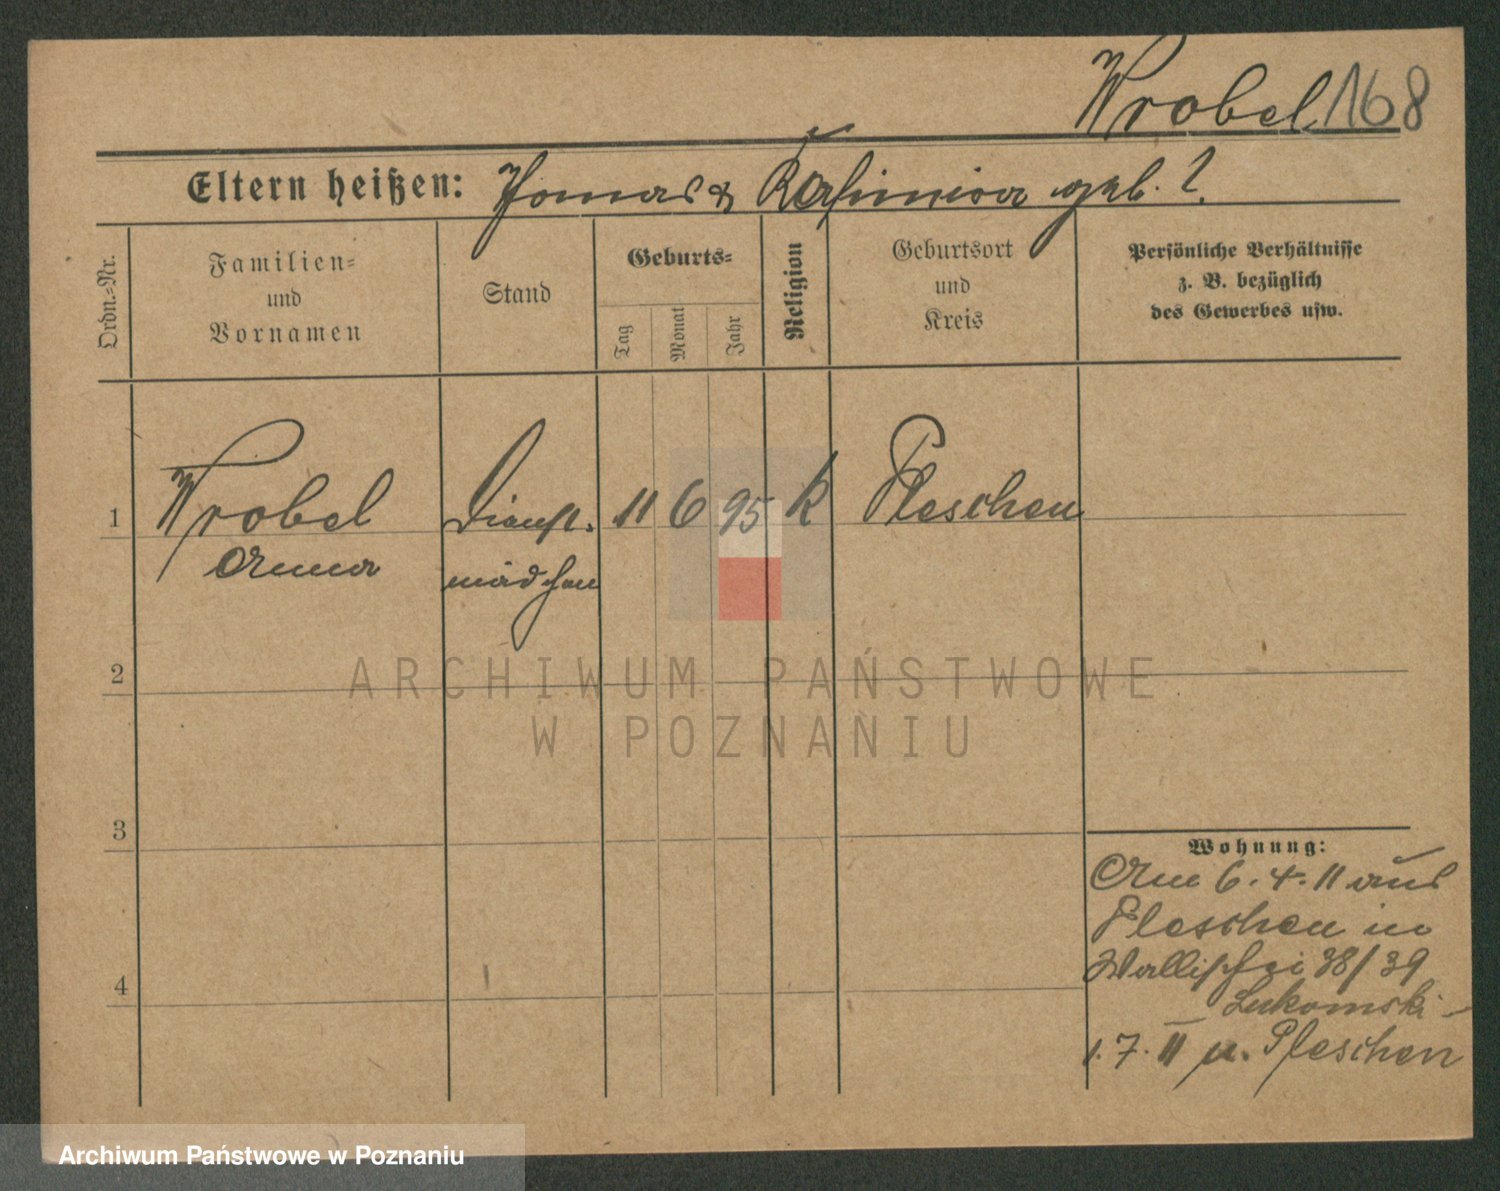 Wrobel 168
Eltern heißen: Thomas & Kasimira geb. ?
Ordn.-Nr.
Familien-
und
Vornamen
Stand
Geburts-
Tag
Monat
Jahr
Religion
Geburtsort
und
Kreis
Persönliche Verhältnisse
z. B. bezüglich
des Gewerbes usw.
1 Wrobel Dienst- 11 6 95 k Pleschen
Anna mädchen
2
ARCHIWUM PAŃSTWOWE
W POZNANIU
3
Wohnung:
Am 6.4.11 aus
Pleschen in
38/39
4
Lukomski
1.7.11 n. Pleschen
Archiwum Państwowe w Poznaniu